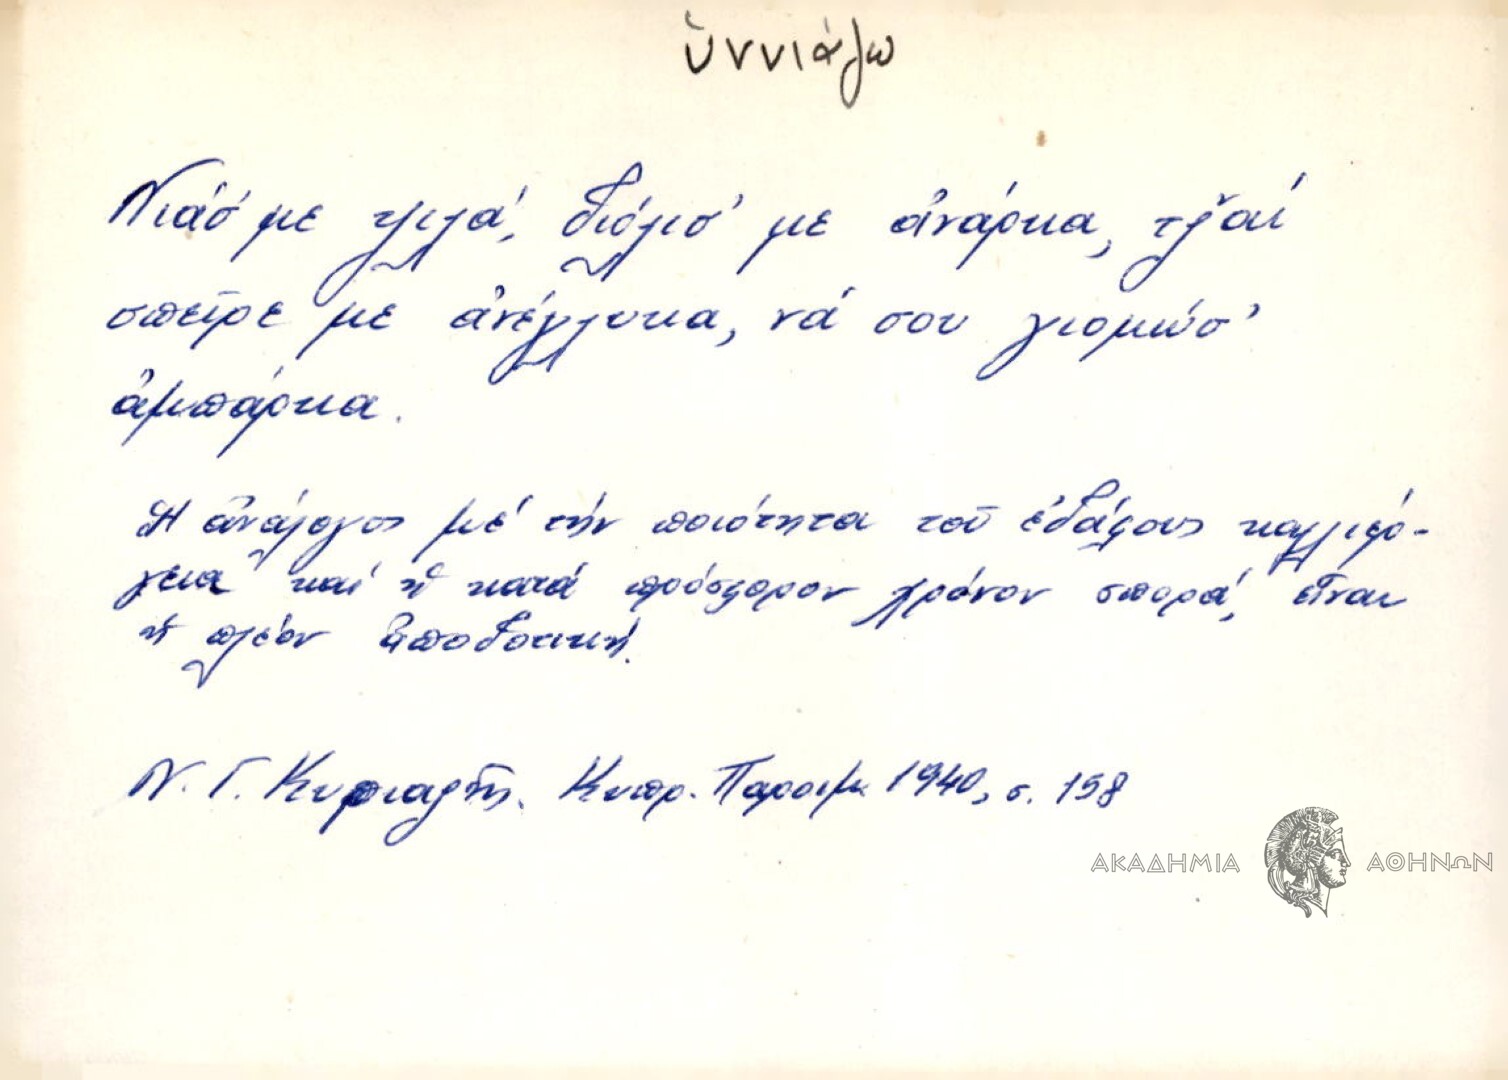 ὑννιάζω
Νιάσ' με πηλά, διόλισ' με ἀνάρκα, τζ̌αί
σπεῖρε με ἀνέγλυκα, νά σου γιομώσ'
ἀμπάρκα.
Ἡ ἀνάλογος μέ τήν ποιότητα τοῦ ἐδάφους καλλιέρ-
γεια καί ἡ κατά πρόσφορον χρόνον σπορά, εἶναι
ἡ πλέον ἀποδοτική.
Ν. Γ. Κυριαζῆς. Κυπρ. Παροιμ. 1940, σ. 158
ΑΚΑΔΗΜΙΑ ΑΘΗΝΩΝ